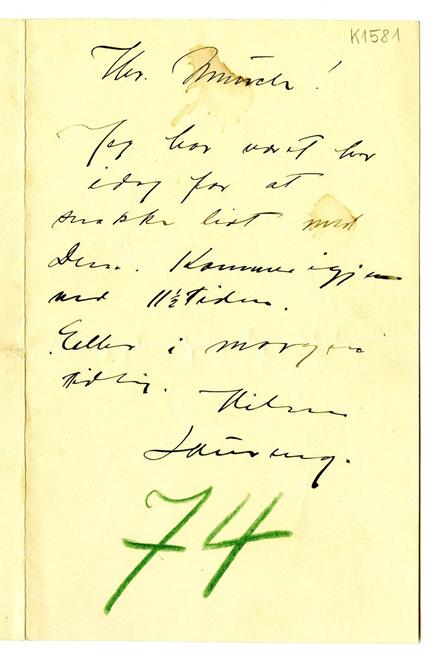 K1581
Hr. Munch!
Jeg har været her
idag for at
snakke lidt med
Dem. Kommer igjen
ved 11½ Tiden.
Eller i morgen
tidlig.
Hilsen
74